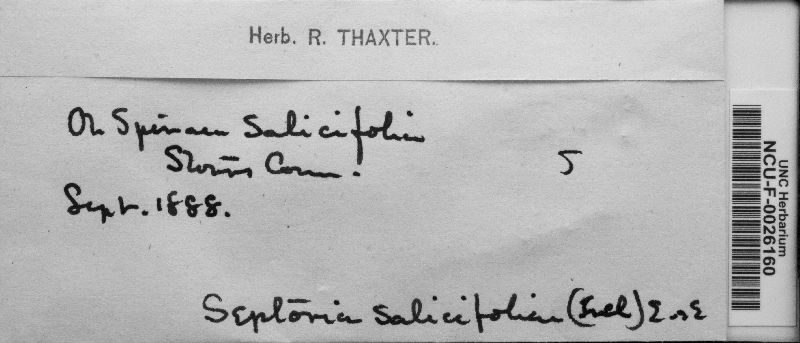 Herb. R. THAXTER.
On Spiraea Salicifolia
Storrs Conn.
5
Sept. 1888.
Septoria Salicifoliae (Trel) E &
UNC Herbarium
NCU-F-0026160